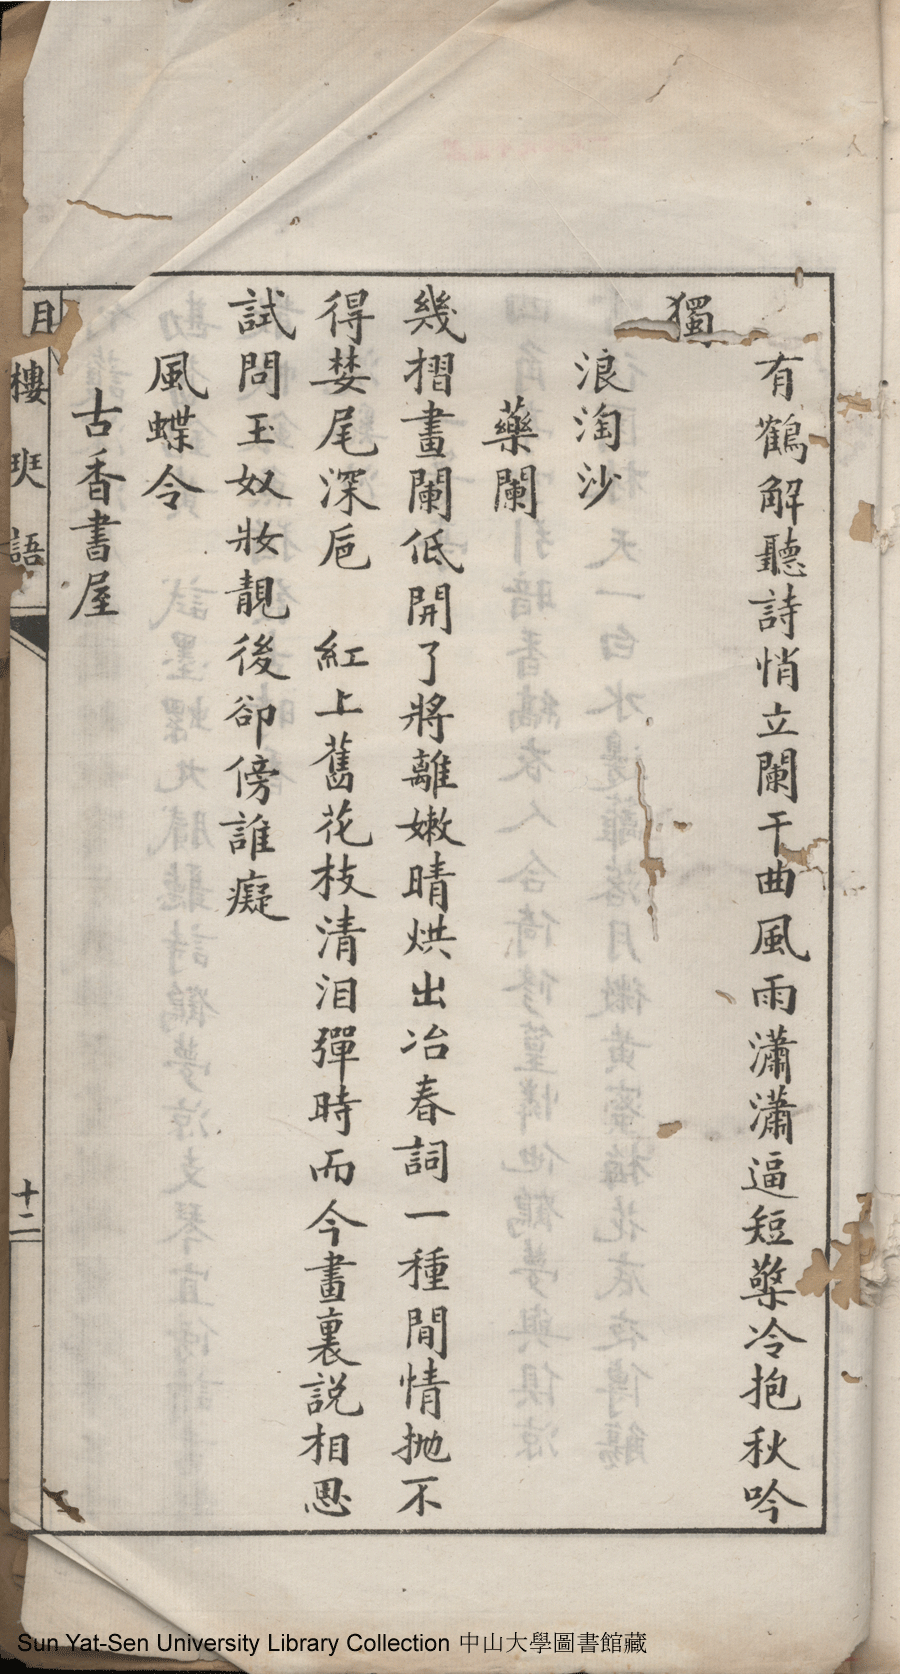 有鶴解聽詩悄立闌干曲風雨瀟瀟逼短檠冷抱秋吟
獨
浪淘沙
藥闌
幾摺畫闌低開了將離嫩晴烘出冶春詞一種閒情抛不
得婪尾深巵　紅上舊花枝清泪彈時而今畫裏説相思
試問玉奴妝靚後卻傍誰癡
風蝶令
古香書屋
樓琖語
十二
Sun Yat-Sen University Library Collection 中山大學圖書館藏